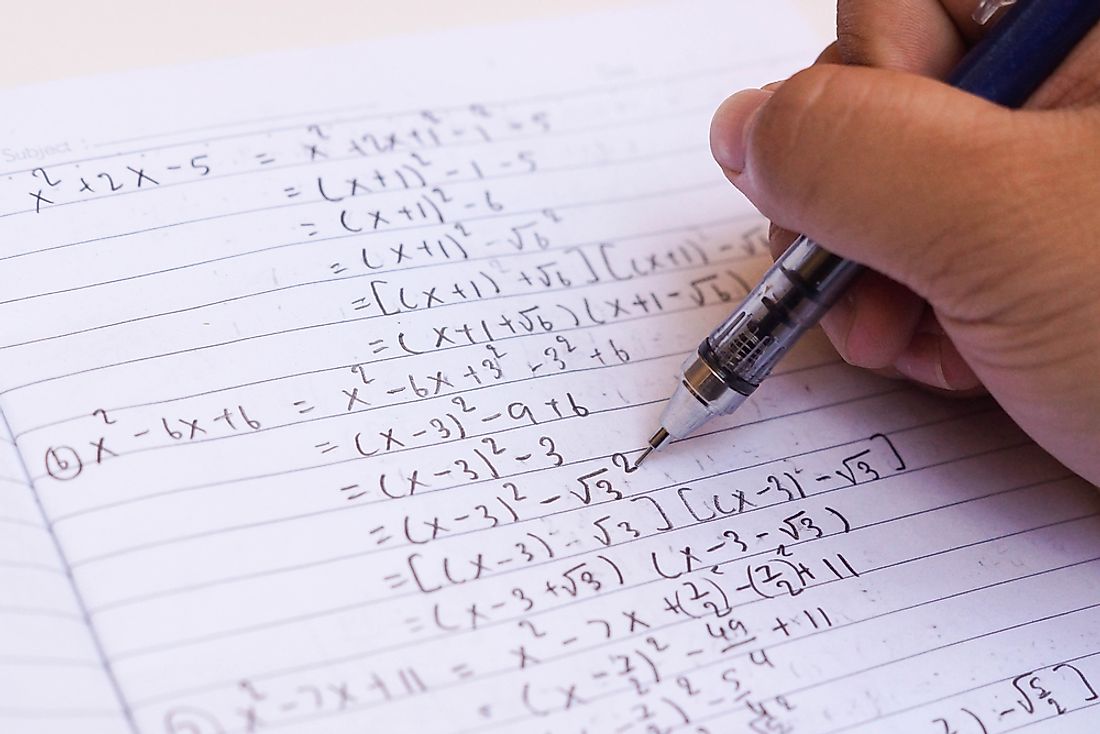 Subject :
x² + 2x - 5 = x² + 2x + 1² - 1² - 5
= (x+1)² - 1 - 5
= (x+1)² - 6
= (x+1)² - √6²
= [(x+1)² + √6] [(x+1)² - √6
= (x+1+√6) (x+1-√6)
(b) x² - 6x + 6 = x² - 6x + 3² - 3² + 6
= (x-3)² - 9 + 6
= (x-3)² - 3
= (x-3)² - √3²
= [(x-3) - √3] [(x-3) - √3]
= (x-3+√3) (x-3-√3)
x² - 7x + 11 = x² - 7x + (7/2)² - (7/2)² + 11
(x - 7/2)² - 49/4 + 11
- 7/2)² - 5/4
) - √5/2]